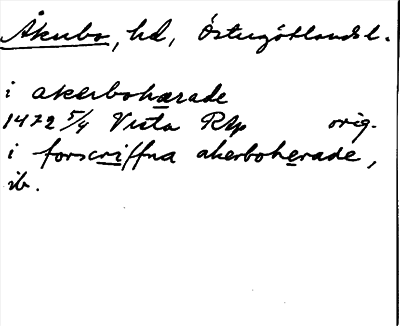 Åkerbo, hd, Östergötlands l.
i akerbohærade
1472 5/4 Vista RAp orig.
i forscriffna akerboherade,
ib.